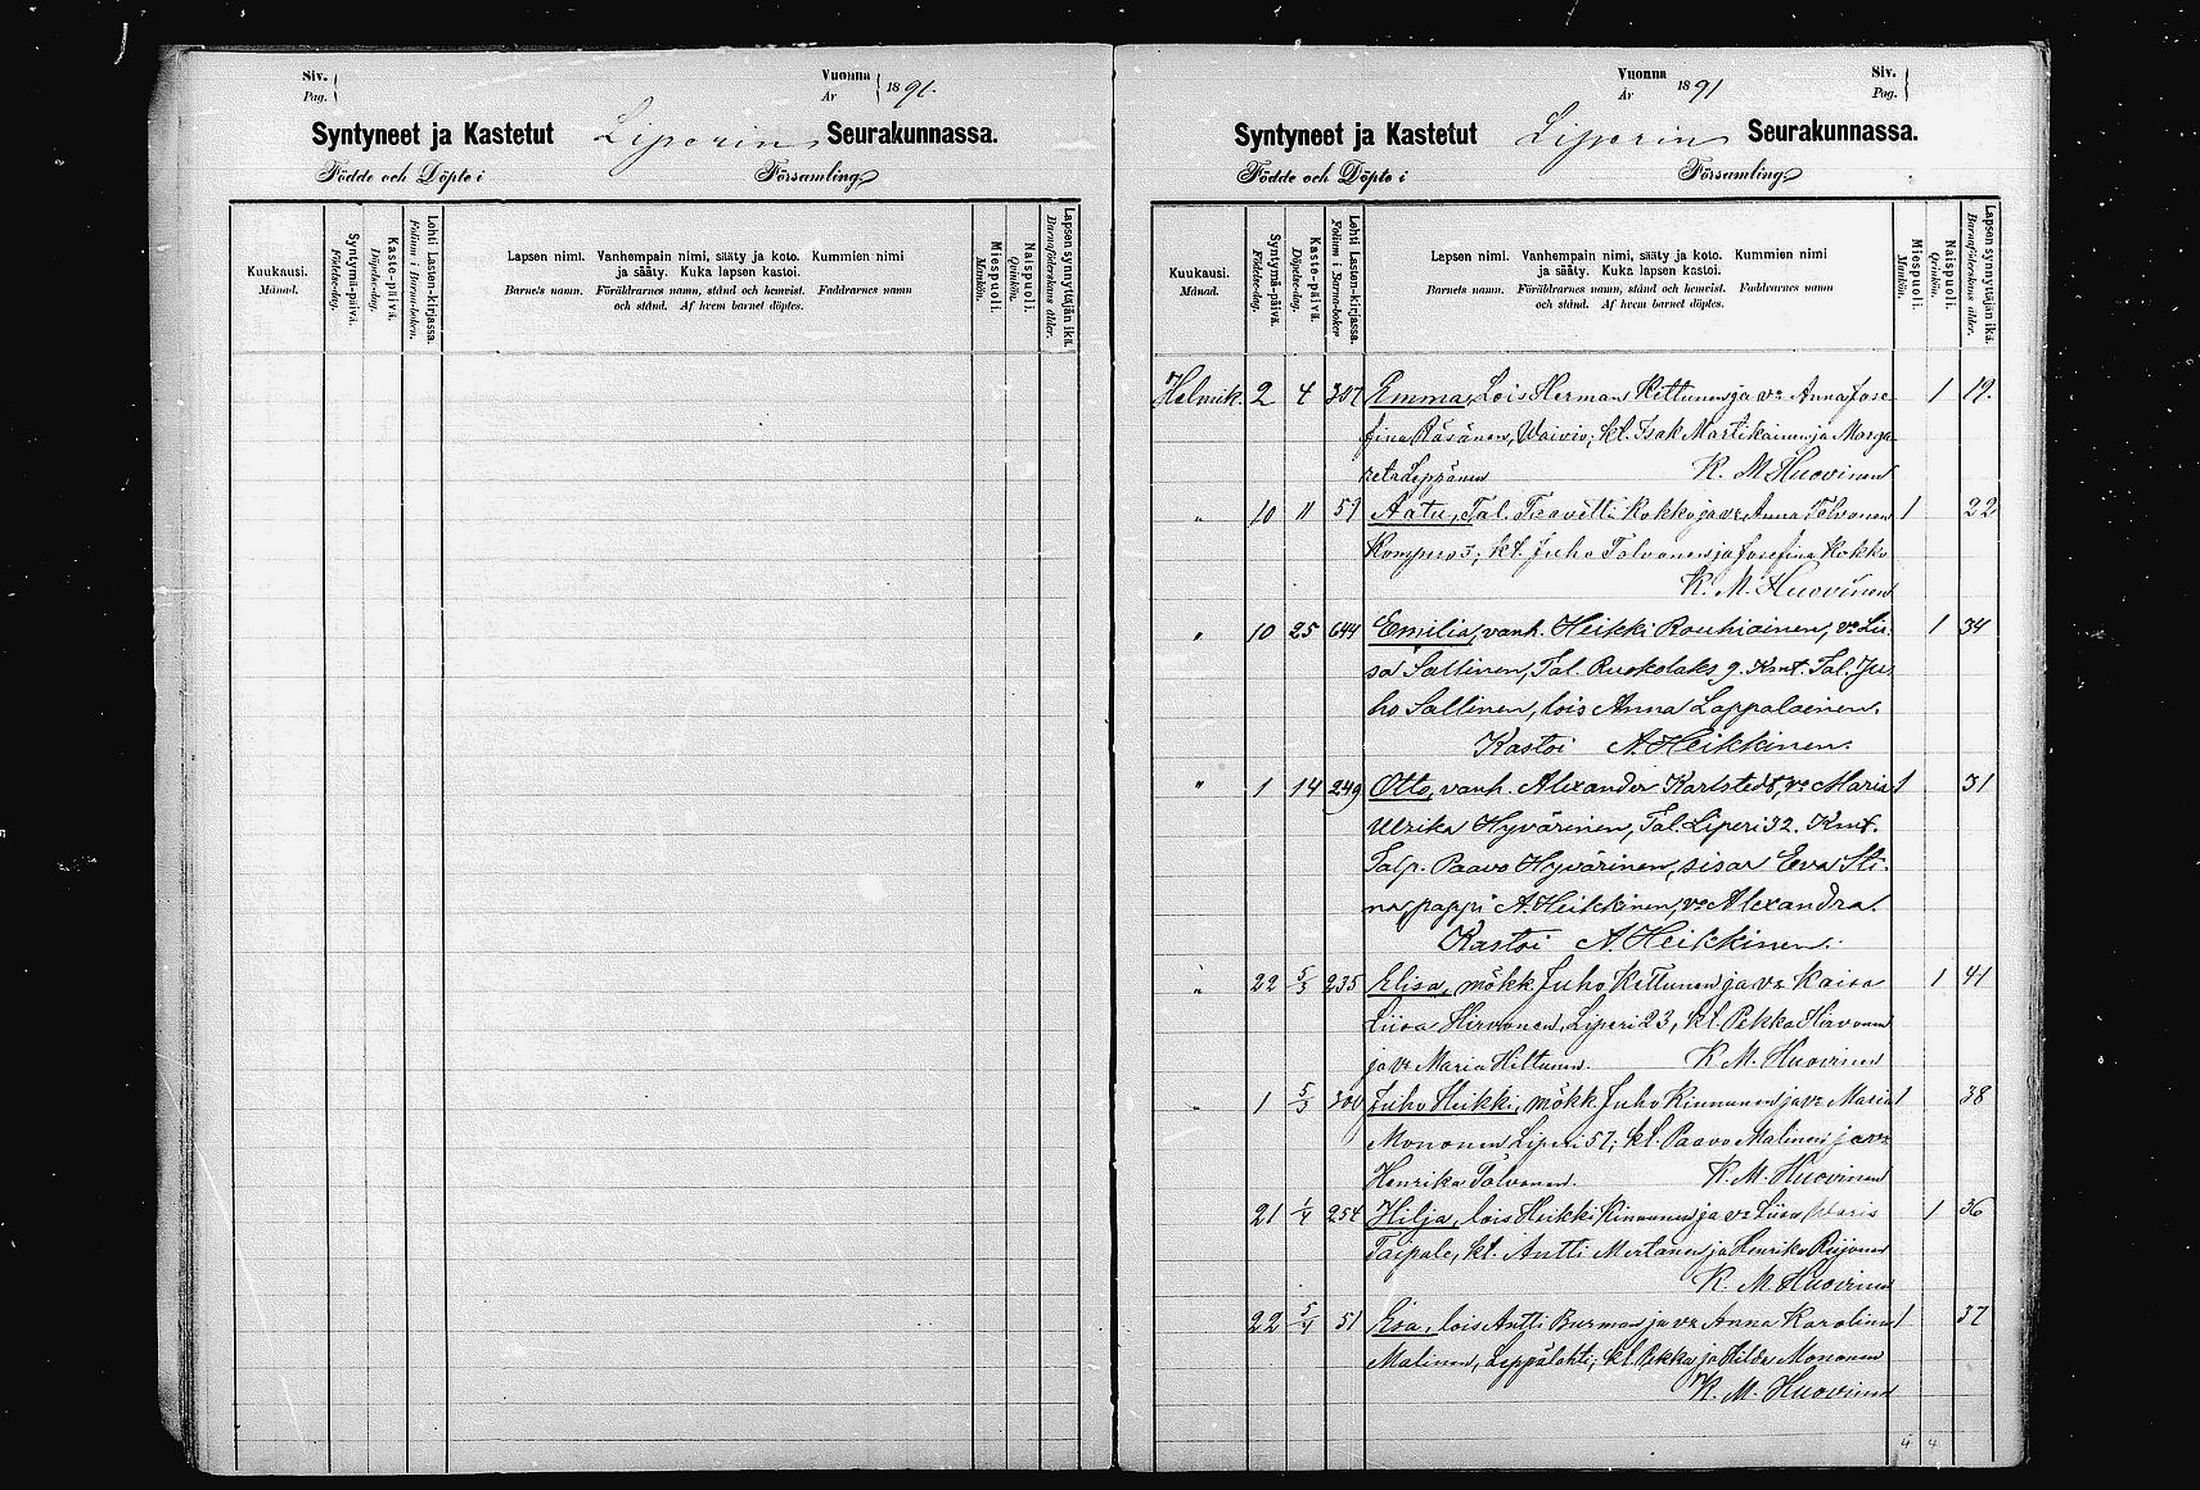 Siv.
Pag.
Vuonna
År
1891.
Syntyneet ja Kastetut Liperin Seurakunnassa.
Födde och Döpte i Församling
Kuukausi.
Månad.
Syntymä-päivä.
Födelse-dag.
Kaste-päivä.
Döpelse-dag.
Lehti Lasten-kirjassa.
Folium i Barna-boken.
Lapsen nimi. Vanhempain nimi, sääty ja koto. Kummien nimi
ja sääty. Kuka lapsen kastoi.
Barnets namn. Föräldrarnes namn, stånd och hemvist. Faddrarnes namn
och stånd. Af hvem barnet döptes.
Miespuoli.
Mankön.
Naispuoli.
Qvinkön.
Lapsen synnyttäjän ikä.
Barnaföderskans ålder.
Vuonna
År
1891
Siv.
Pag.
Syntyneet ja Kastetut Liperin Seurakunnassa.
Födde och Döpte i Församling
Kuukausi.
Månad.
Syntymä-päivä.
Födelse-dag.
Kaste-päivä.
Döpelse-dag.
Lehti Lasten-kirjassa.
Folium i Barna-boken
Lapsen nimi. Vanhempain nimi, sääty ja koto. Kummien nimi
ja sääty. Kuka lapsen kastoi.
Barnets namn. Föräldrarnes namn, stånd och hemvist. Faddrarnes namn
och stånd. Af hvem barnet döptes.
Miespuoli.
Mankön.
Naispuoli.
Qvinkön.
Lapsen synnyttäjän ikä.
Barnaföderskans ålder.
Helmik. 2 4 307 Emma, Lois Herman Kettunen ja vo Anna Jose 1 19.
fina Räsänen, Waivio; kl. Isak Martikainen ja Marga
reta Leppänen K. M Huovinen
" 10 11 59 Aatu, Tal. Taavetti Kokko ja vo Anna Tolvanen 1 22
Kompero 3; kl. Juho Tolvanen ja Josefina Kokko
K. M. Huovinen
" 10 25 644 Emilia, vanh. Heikki Rouhiainen, vo Lii 1 34
sa Sallinen, Tal. Ruokolaks 9. Kmt. Tal. Ju
ho Sallinen, lois Anna Lappalainen.
Kastoi A. Heikkinen.
" 1 14 249 Otto, vanh. Alexander Karlstedt, vo Maria 1 31
Ulrika Hyvärinen, Tal. Liperi 32. Kmt.
Talp. Paavo Hyvärinen, sisar Eva Sti
na, pappi A. Heikkinen, vo Alexandra.
Kastoi A. Heikkinen.
" 22 5/3 235 Elisa, mökk. Juho Kettunen ja vo Kaisa 1 41
Liisa Hirvonen, Liperi 23, kl. Pekka Hirvonen
ja vo Maria Hiltunen. K. M. Huovinen
" 1 5/3 300 Juho Heikki, mökk. Juho Kinnunen ja vo Maria 1 38
Mononen Liperi 57; kl. Paavo Malinen ja vo
Henrika Tolvanen. K. M. Huovinen
21 1/4 254 Hilja, lois Heikki Kinnunen ja vo Liisa 1 36
Taipale, kl. Antti Mertanen ja Henrika Reijonen
K. M. Huovinen
22 5/4 51 Esa, lois Antti Burman ja vo Anna Karolina 1 37
Malinen, Leppälahti; kl. Pekka ja Hilda Mononen
K. M. Huovinen
4 4